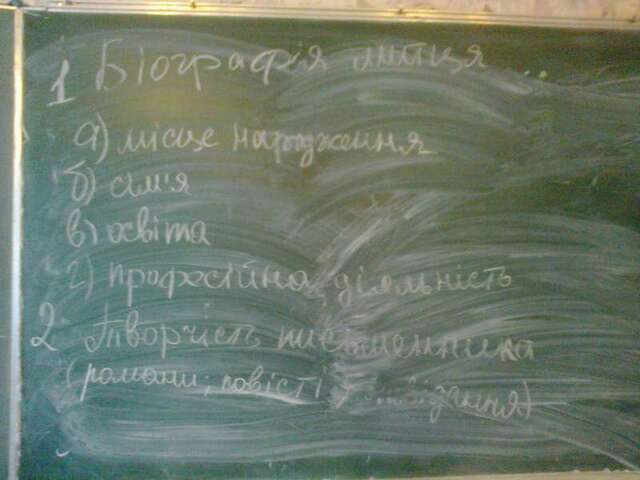 1 Біографія митця
а) місце народження
б) сім'я
в) освіта
г) професійна діяльність
2 Творчість письменника
(романи, повісті, оповідання)